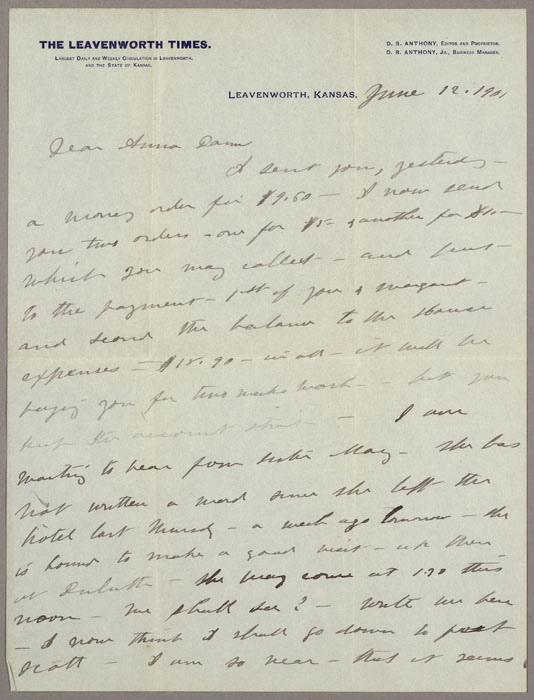 THE LEAVENWORTH TIMES.
LARGEST DAILY AND WEEKLY CIRCULATION IN LEAVENWORTH,
AND THE STATE OF KANSAS.
D. R. ANTHONY, EDITOR AND PROPRIETOR.
D. R. ANTHONY, JR., BUSINESS MANAGER.
LEAVENWORTH, KANSAS, June 12. 1901
Dear Anna Dann
I sent you, yesterday —
a money order for $9.60 — I now send
you two orders - one for $5 - & another for $1. —
which you may collect — and put
to the payment — 1st of you & Margaret —
and second the balance to the House
expenses — $15.90 — in all — it will be
paying you for two weeks work — — but you
keep the account strait — I am
waiting to hear from sister Mary — she has
not written a word since she left the
hotel last Thursdy — a week ago tomorrow — she
is bound to make a good visit — up there
at Duluth — she may come at 1.20 this
noon — we shall see? — Write me here
— I now think I shall go down to Fort
Scott — I am so near — that it seems